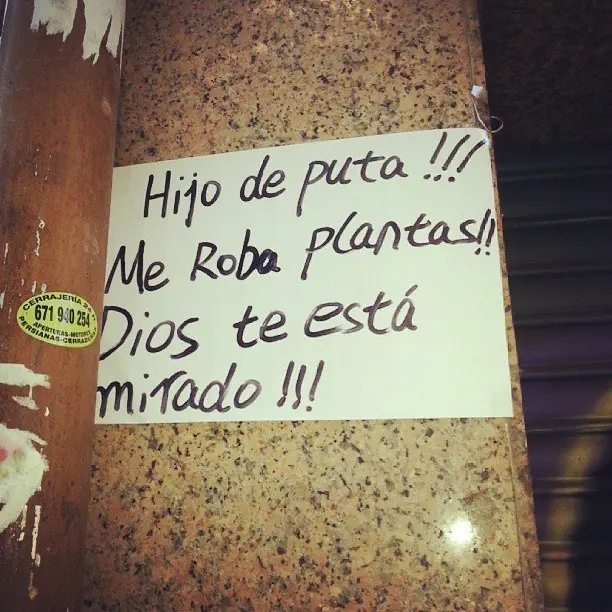 Hijo de puta !!!
Me Roba plantas!!
Dios te está
mirado !!!
CERRAJERIA 24 H
671 940 254
APERTURAS-MOTORES
PERSIANAS-CERRADURAS